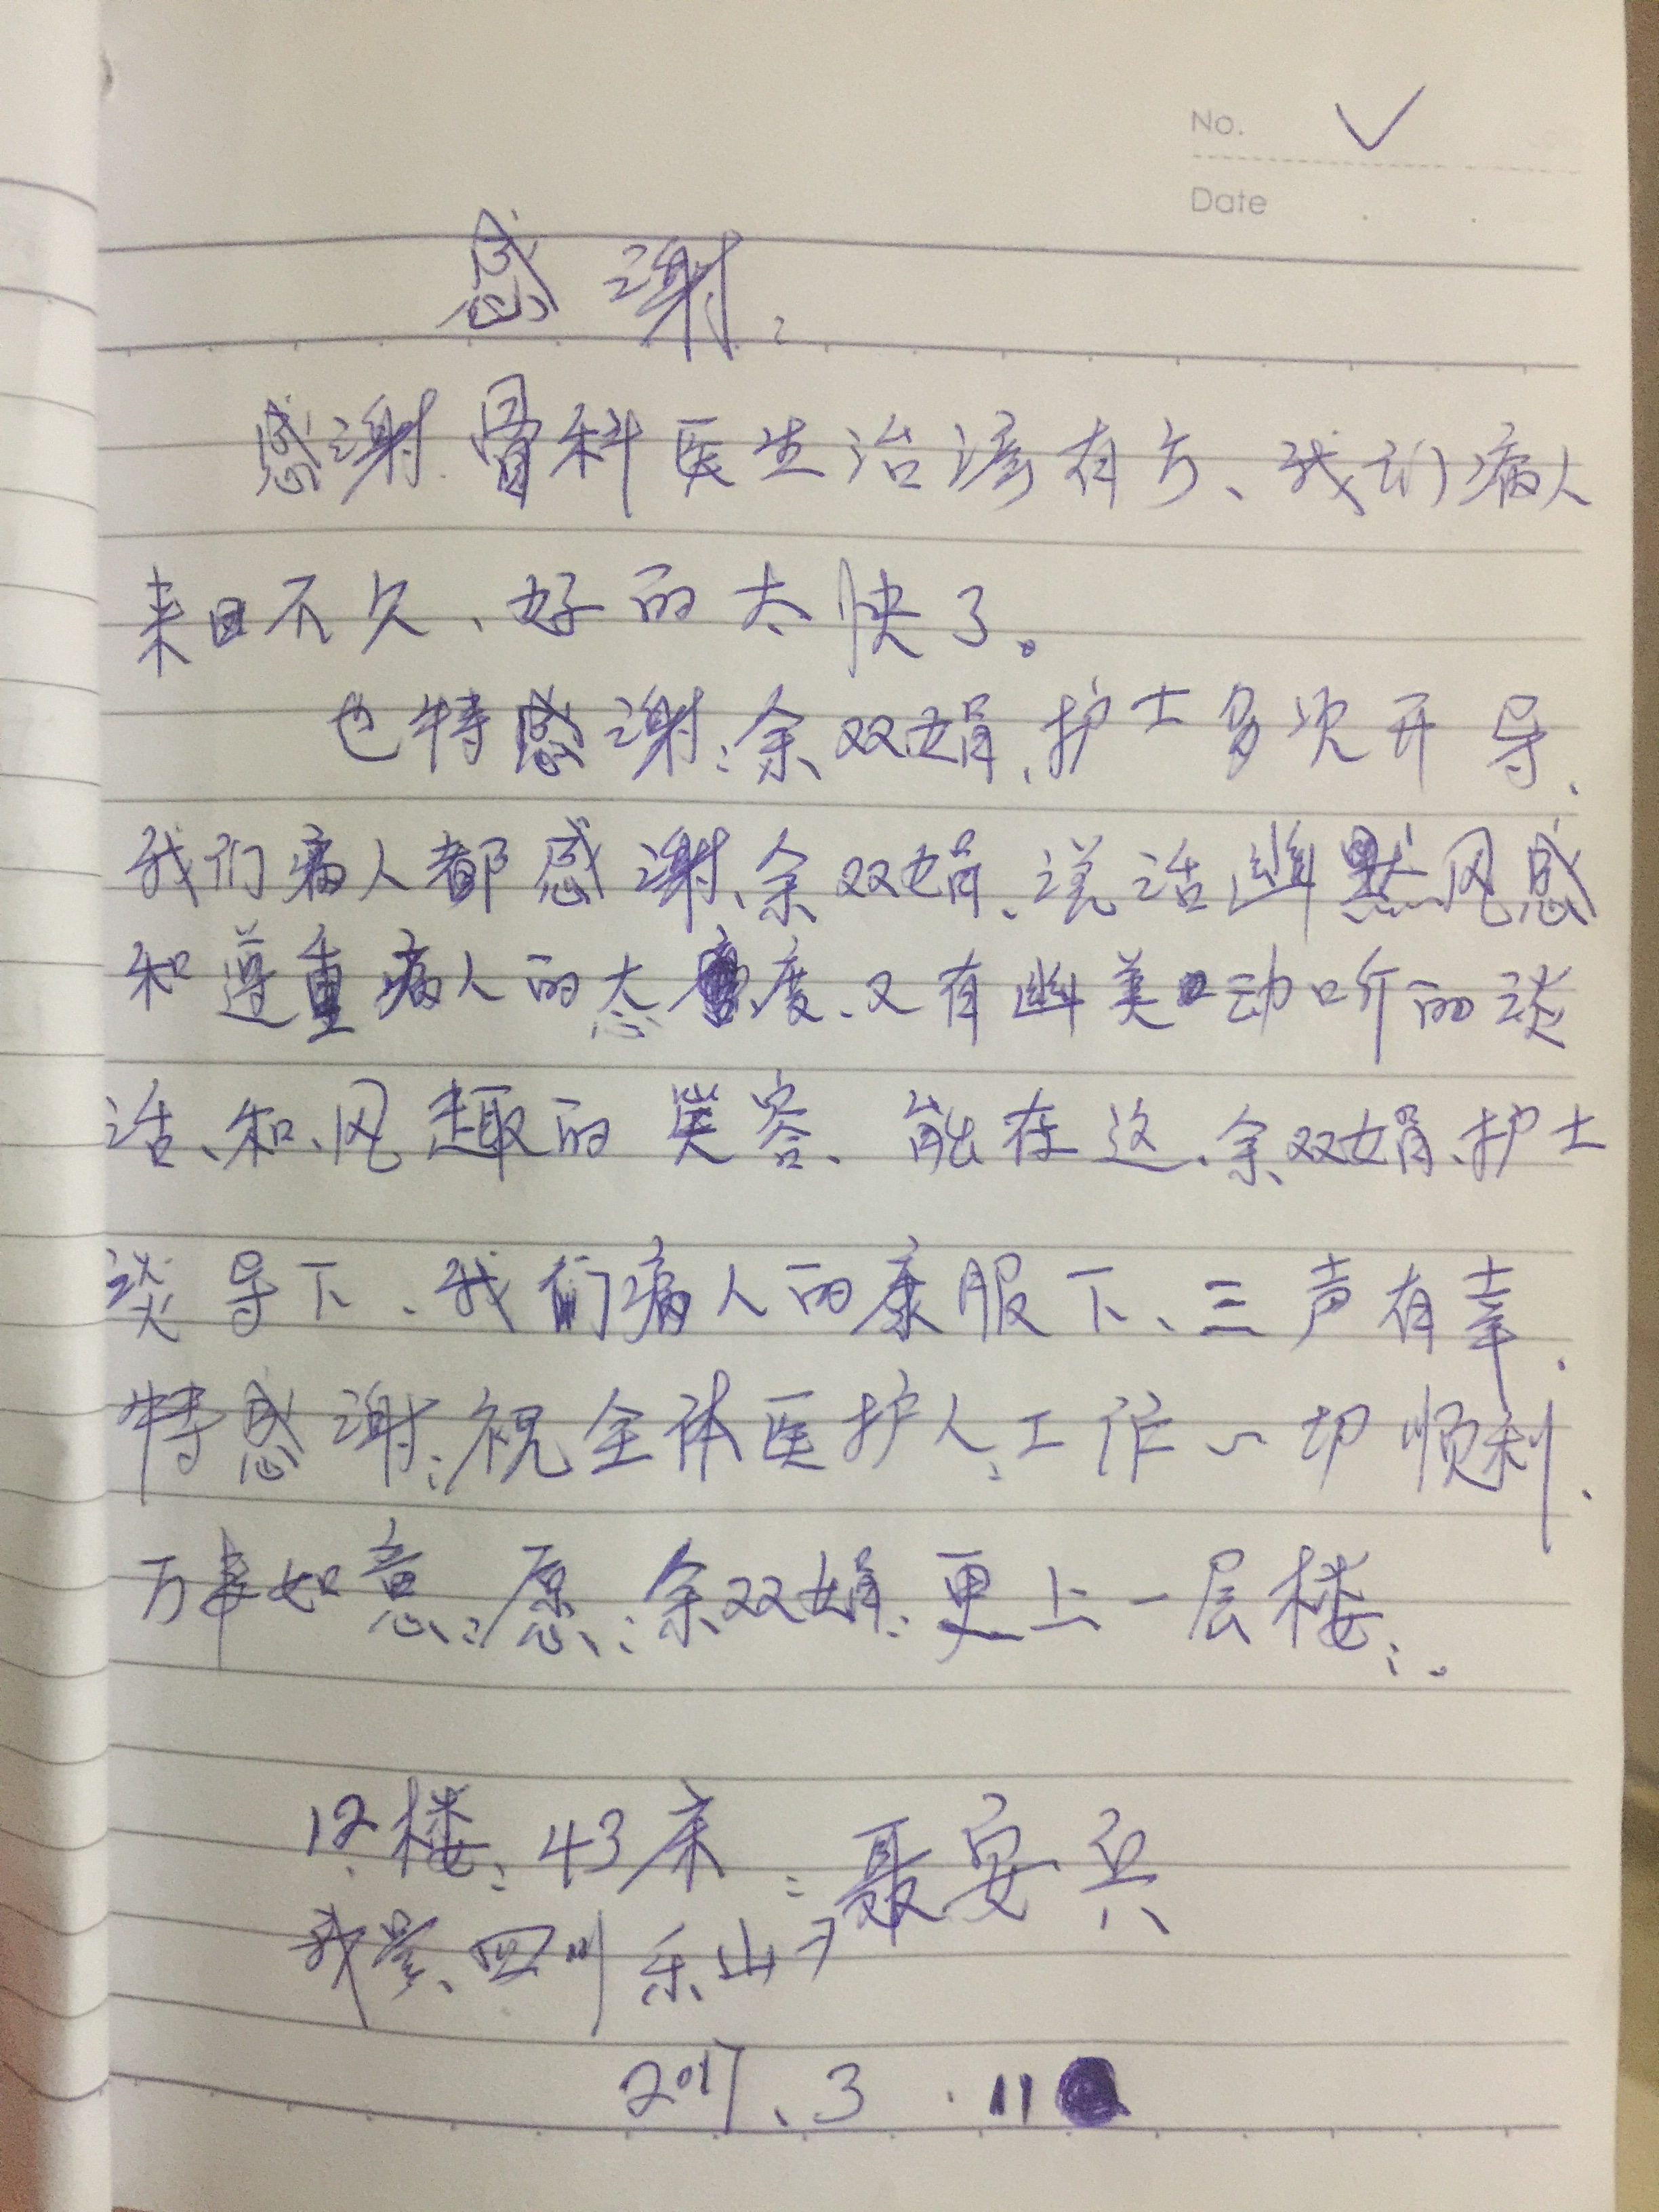 No. ✓
Date
感谢:
感谢骨科医生治疗有方、我们病人
来日不久、好的太快了。
也特感谢:余双娟、护士多次开导、
我们病人都感谢、余双娟、说话幽默风感
和尊重病人的态度、又有幽美动听的谈
话、和、风趣的笑容、能在这、余双娟、护士
谈导下、我们病人的康服下、三声有幸、
特感谢:祝全体医护人:工作一切顺利、
万事如意:愿:余双娟:更上一层楼:。
12楼:43床:聂安兵
我是、四川乐山
2017、3.11